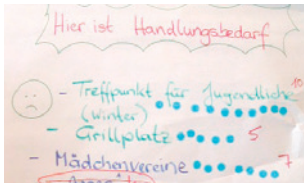 Hier ist Handlungsbedarf
- Treffpunkt für Jugendliche 10
(Winter)
- Grillplatz 5
- Mädchenvereine 7